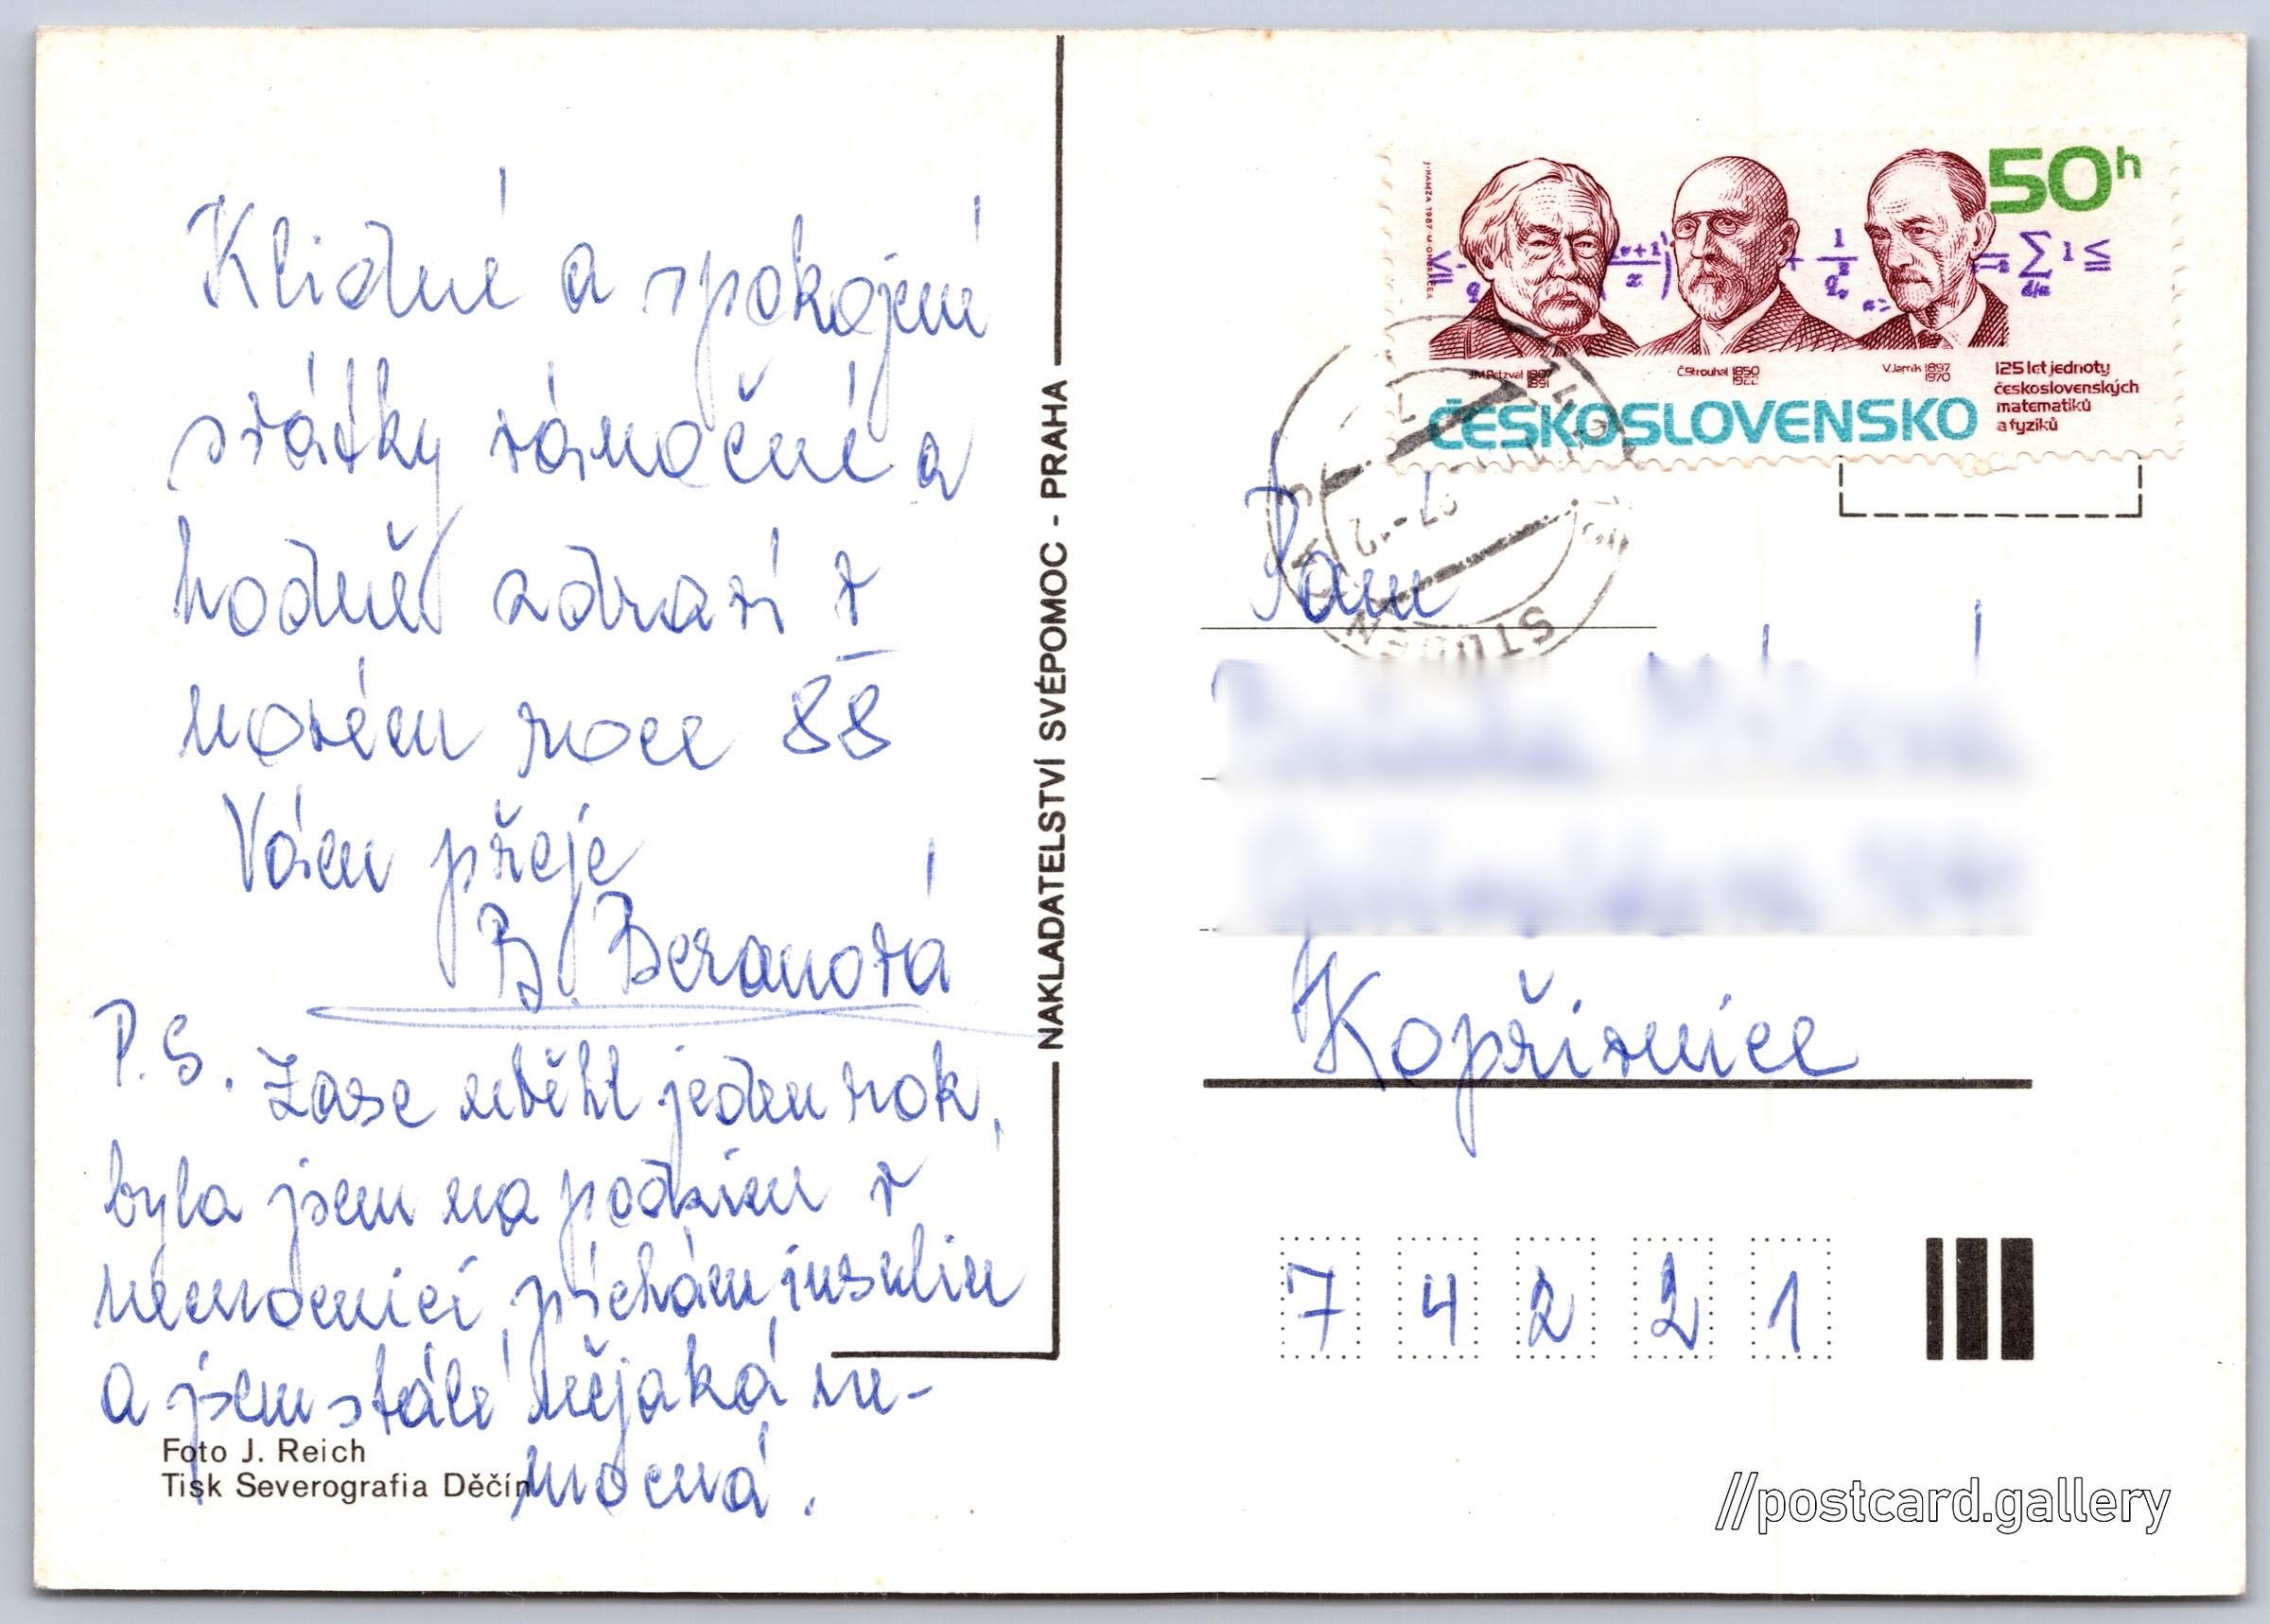 Klidné a spokojené
svátky vánoční a
hodně zdraví v
novém roce 88
Vám přeje
B. Beranová
P.S. Zase uběhl jeden rok,
byla jsem na podzim v
nemocnici, píchám insulin
a jsem stále nějaká ne-
mocná.
Foto J. Reich
Tisk Severografia Děčín
NAKLADATELSTVÍ SVÉPOMOC - PRAHA
50h
J. M. Petzval 1807 1891
Č. Strouhal 1850 1922
V. Jarník 1897 1970
125 let jednoty
československých
matematiků
a fyziků
ČESKOSLOVENSKO
STUDÉNKA
Paní
Kopřivnice
7 4 2 2 1
//postcard.gallery